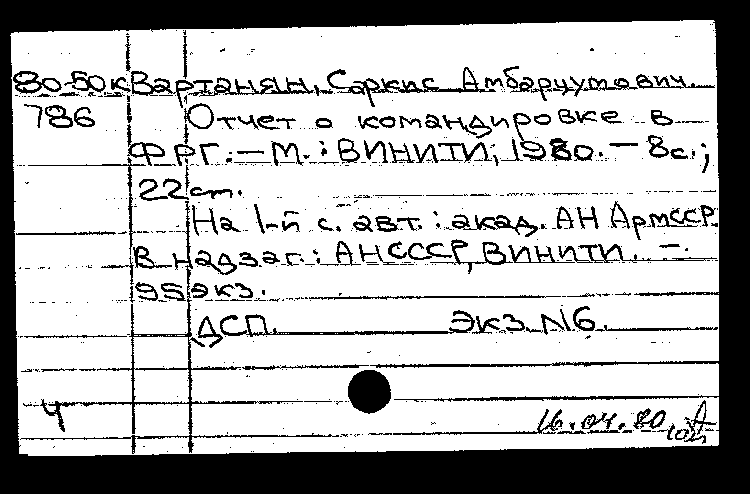 80-50к Вартанян, Саркис Амбарцумович.
786 Отчет о командировке в
ФРГ. — М.: ВИНИТИ, 1980. — 8с.;
22 cm.
На 1-й с. авт.: акад. АН АрмССР.
В надзаг.: АН СССР, ВИНИТИ. —
95 экз.
ДСП. Экз. N6.
Ч 16.04.80.